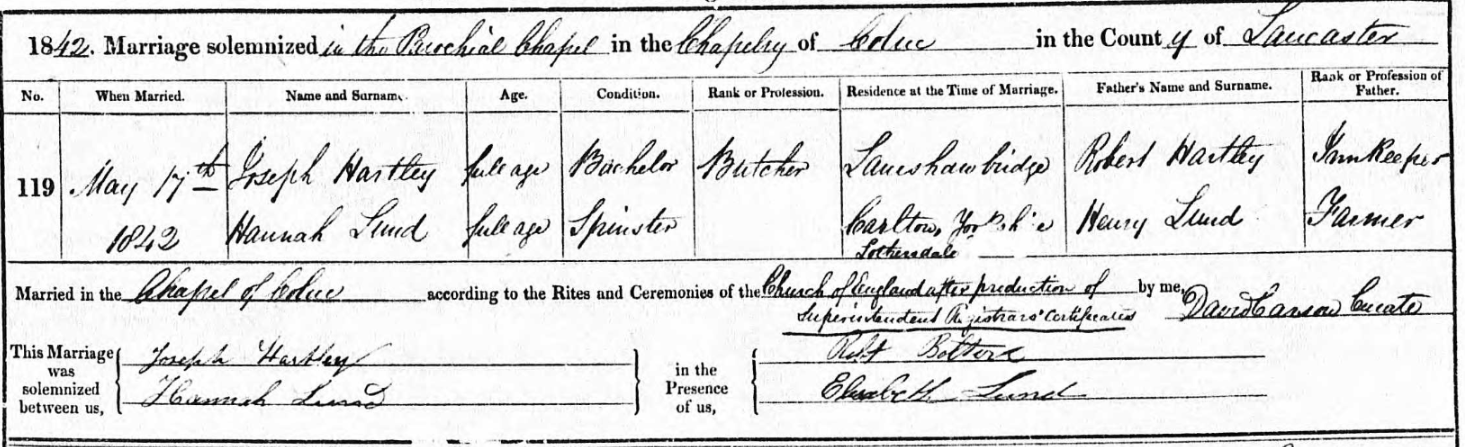 1842. Marriage solemnized in the Parochial Chapel in the Chapelry of Colne in the County of Lancaster
No. When Married. Name and Surname. Age. Condition. Rank or Profession. Residence at the Time of Marriage. Father's Name and Surname. Rank or Profession of Father.
119 May 17th 1842 Joseph Hartley full age Bachelor Butcher Laneshawbridge Robert Hartley Innkeeper
Hannah Lund full age Spinster Carlton, Yorkshire Lothersdale Henry Lund Farmer
Married in the Chapel of Colne according to the Rites and Ceremonies of the Church of England after production of Superintendent Registrars' Certificates by me, David Curate
This Marriage was solemnized between us, Joseph Hartley in the Presence of us, Robt
Hannah Lund Elizabeth Lund